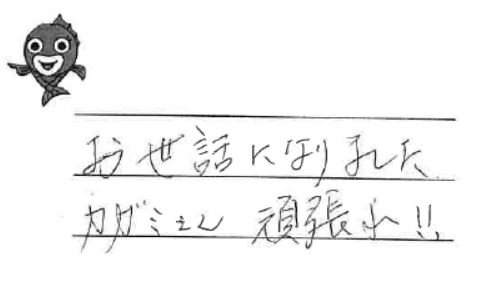 お世話になりました
カガミさん 頑張れ!!